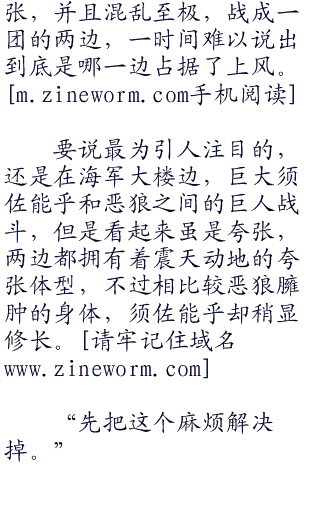 张，并且混乱至极，战成一
团的两边，一时间难以说出
到底是哪一边占据了上风。
[m.zineworm.com手机阅读]
要说最为引人注目的，
还是在海军大楼边，巨大须
佐能乎和恶狼之间的巨人战
斗，但是看起来虽是夸张，
两边都拥有着震天动地的夸
张体型，不过相比较恶狼臃
肿的身体，须佐能乎却稍显
修长。[请牢记住域名
www.zineworm.com]
“先把这个麻烦解决
掉。”